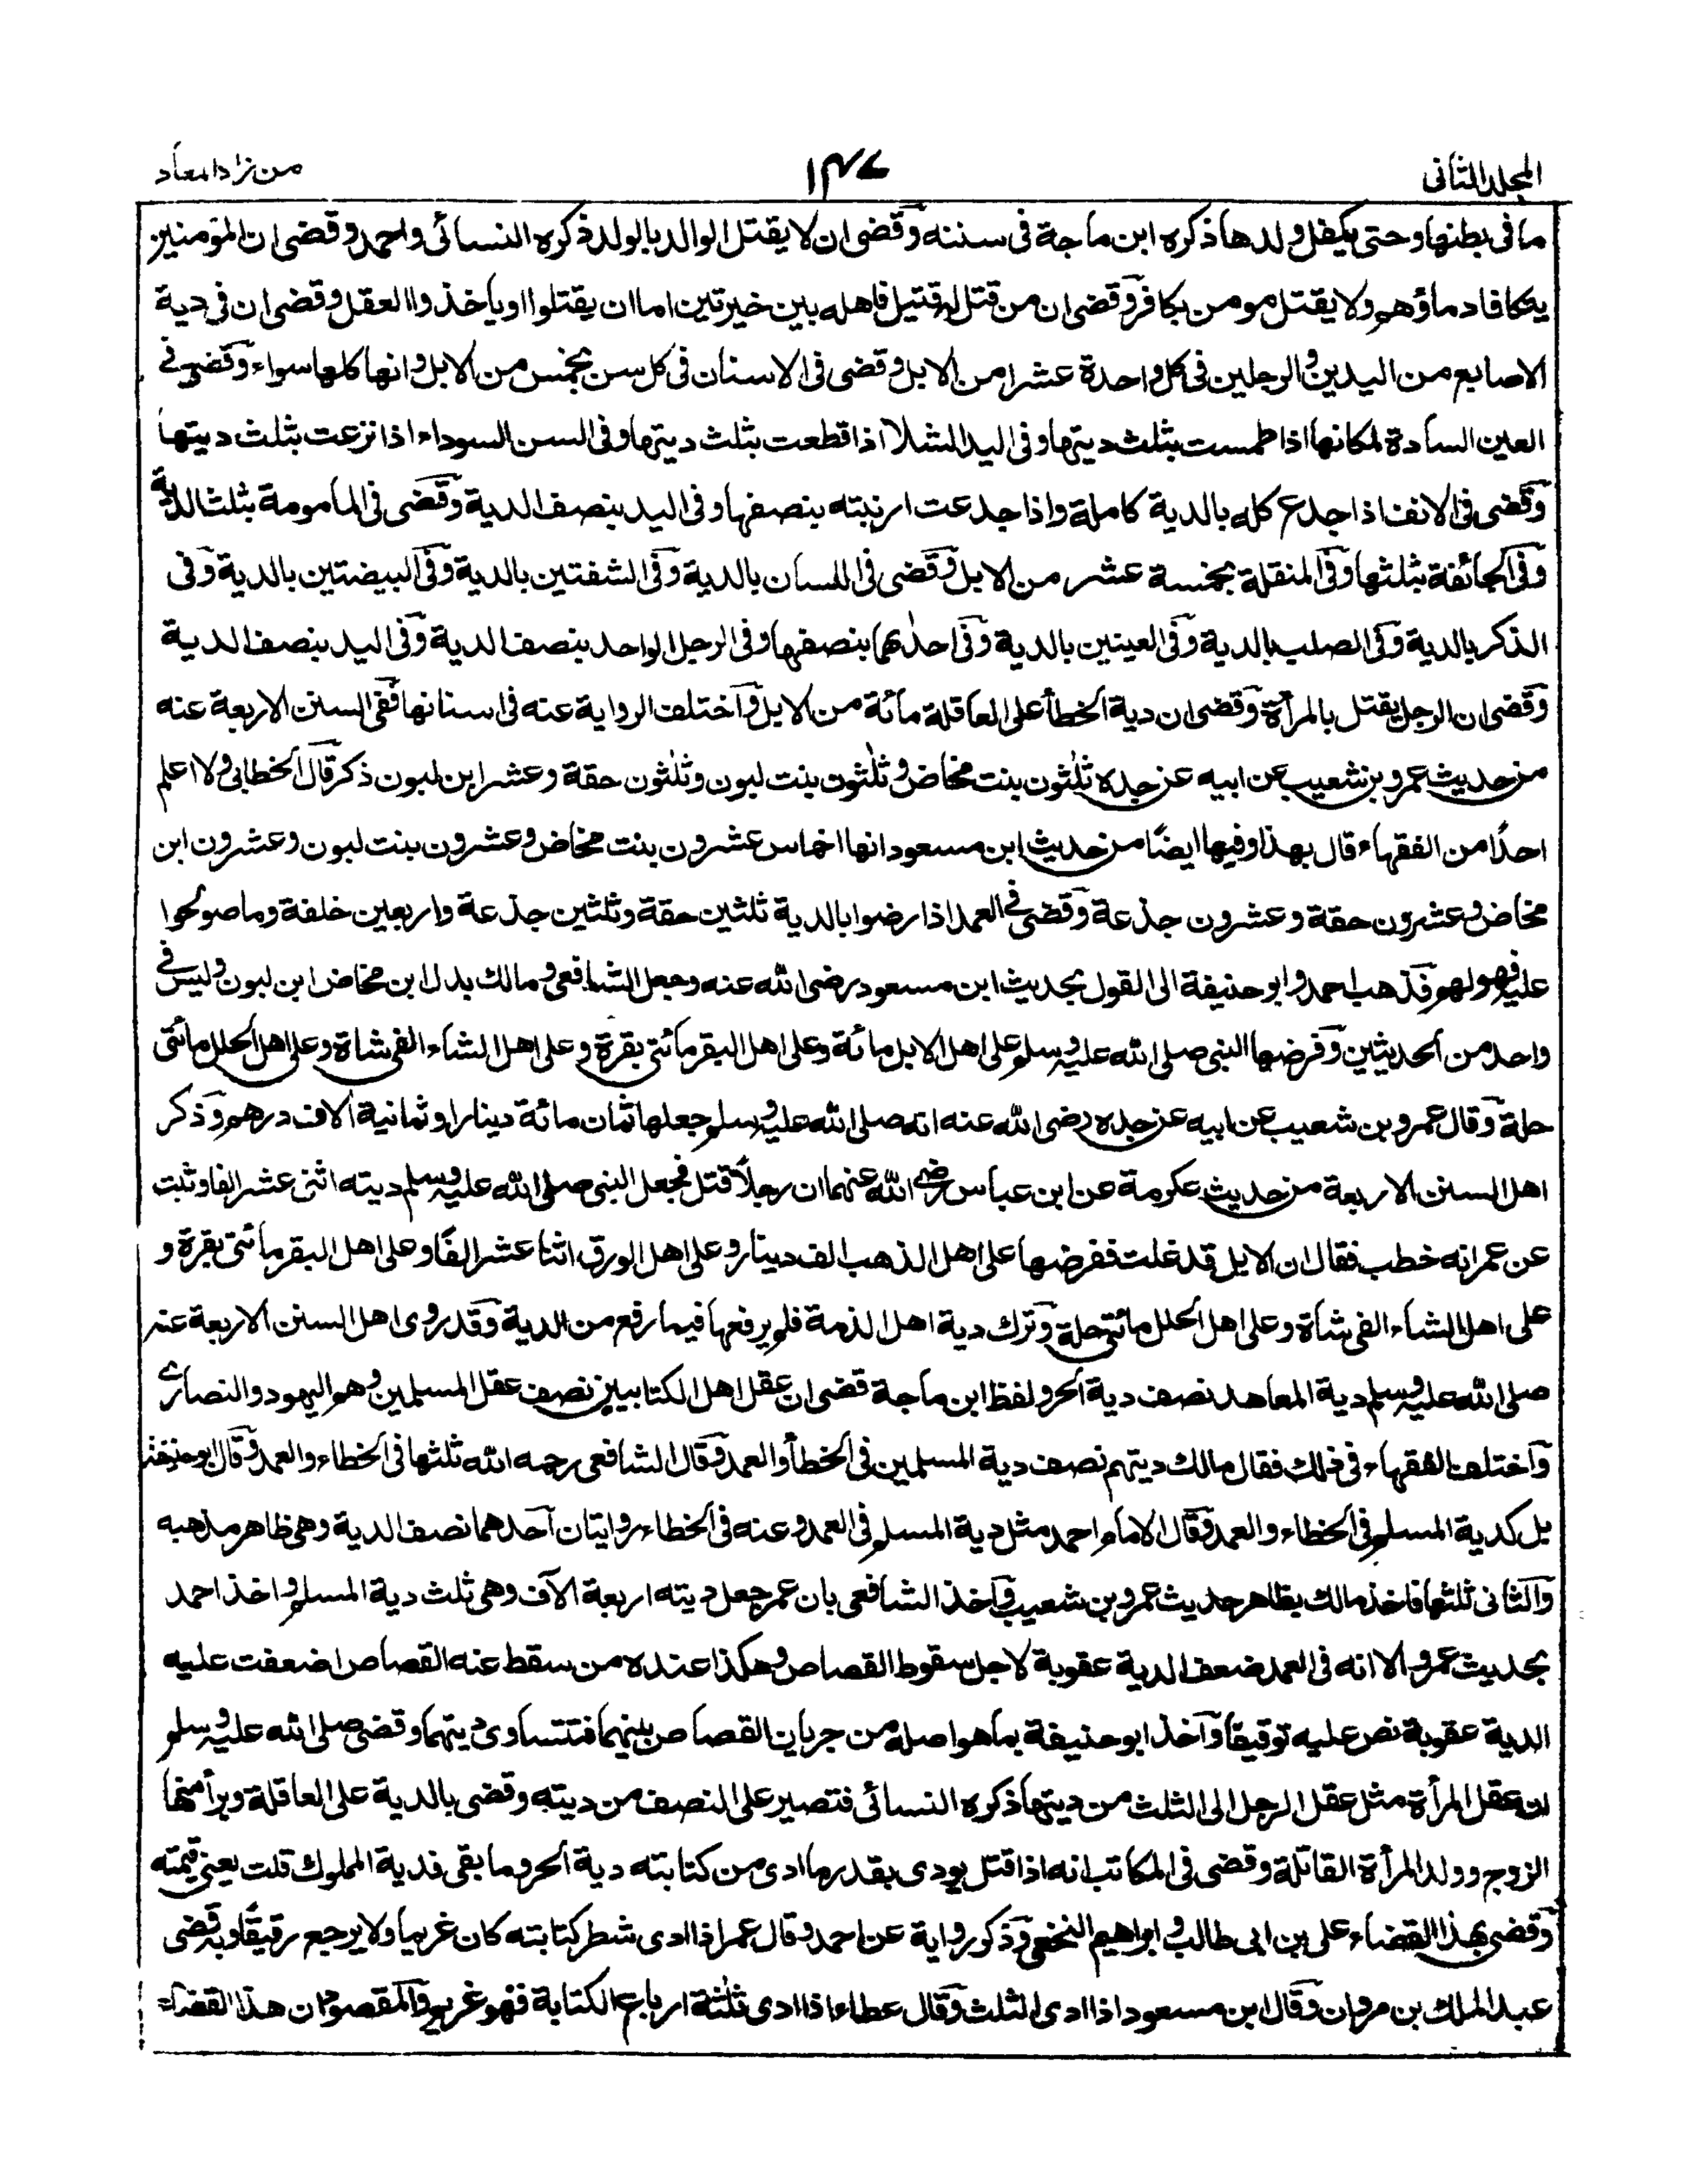 المجلد الثانى
١٣٧
من زاد المعاد
ما فى بطنها وحتى يكفل ولدها ذكره ابن ماجة فى سننه وقضى ان لا يقتل الوالد بالولد ذكره النسائى واحمد وقضى ان المؤمنين
يتكافا دماؤهم ولا يقتل مومن بكافر وقضى ان من قتل له قتيل فاهله بين خيرتين اما ان يقتلوا او ياخذوا العقل وقضى ان فى دية
الاصابع من اليدين والرجلين فى كل واحدة عشرا من الابل وقضى فى الاسنان فى كل سن بخمس من الابل وانها كلها سواء وقضى فى
العين السادة لمكانها اذا طمست بثلث ديتها وفى اليد الشلا اذا قطعت بثلث ديتها وفى السن السوداء اذا نزعت بثلث ديتها
وقضى فى الانف اذا جدع كله بالدية كاملة واذا جدعت ارنبته بنصفها وفى اليد بنصف الدية وقضى فى المامومة بثلث الدية
وفى الجائفة بثلثها وفى المنقلة بخمسة عشر من الابل وقضى فى اللسان بالدية وفى الشفتين بالدية وفى البيضتين بالدية وفى
الذكر بالدية وفى الصلب بالدية وفى العينين بالدية وفى احدٰهما بنصفها وفى الرجل الواحد بنصف الدية وفى اليد بنصف الدية
وقضى ان الرجل يقتل بالمرأة وقضى ان دية الخطأ على العاقلة مائة من الابل واختلف الرواية عنه فى اسنانها ففى السنن الاربعة عنه
من حديث عمرو بن شعيب عن ابيه عن جده ثلٰثون بنت مخاض وثلٰثون بنت لبون وثلٰثون حقة وعشر ابن لبون ذكر قال الخطابى ولا اعلم
احدًا من الفقهاء قال بهذا وفيها ايضًا من حديث ابن مسعود انها اخماس عشرون بنت مخاض وعشرون بنت لبون وعشرون ابن
مخاض وعشرون حقة وعشرون جذعة وقضى فى العمد اذا رضوا بالدية ثلثين حقة وثلثين جذعة واربعين خلفة وما صولحوا
عليه فهو لهم فذهب احمد وابو حنيفة الى القول بحديث ابن مسعود رضى الله عنه وجعل الشافعى ومالك بدل ابن مخاض ابن لبون وليس فى
واحد من الحديثين وفرضها النبى صلى الله عليه وسلم على اهل الابل مائة وعلى اهل البقر مائتى بقرة وعلى اهل الشاء الفى شاة وعلى اهل الحلل مائتى
حلة وقال عمرو بن شعيب عن ابيه عن جده رضى الله عنه انه صلى الله عليه وسلم جعلها ثمان مائة دينارا وثمانية الاف درهم وذكر
اهل السنن الاربعة من حديث عكرمة عن ابن عباس رضى الله عنهما ان رجلاً قتل فجعل النبى صلى الله عليه وسلم ديته اثنى عشر الفا وثبت
عن عمر انه خطب فقال ان الابل قد غلت ففرضها على اهل الذهب الف دينار وعلى اهل الورق اثنا عشر الفًا وعلى اهل البقر مائتى بقرة و
على اهل الشاء الفى شاة وعلى اهل الحلل مائتى حلة وترك دية اهل الذمة فلم يرفعها فيما رفع من الدية وقد روى اهل السنن الاربعة عنه
صلى الله عليه وسلم دية المعاهد نصف دية الحر ولفظ ابن ماجة قضى ان عقل اهل الكتابيين نصف عقل المسلمين وهم اليهود والنصارى
واختلف الفقهاء فى ذلك فقال مالك ديتهم نصف دية المسلمين فى الخطأ والعمد وقال الشافعى رحمه الله ثلثها فى الخطاء والعمد وقال ابو حنيفة
بل كدية المسلم فى الخطاء والعمد وقال الامام احمد مثل دية المسلم فى العمد وعنه فى الخطاء روايتان احدهما نصف الدية وهى ظاهر مذهبه
والثانى ثلثها فاخذ مالك بظاهر حديث عمرو بن شعيب واخذ الشافعى بان عمر جعل ديته اربعة الاف وهى ثلث دية المسلم واخذ احمد
بحديث عمرو الا انه فى العمد ضعف الدية عقوبة لاجل سقوط القصاص وهكذا عنده من سقط عنه القصاص اضعفت عليه
الدية عقوبة نص عليه توقيفا واخذ ابو حنيفة بما هو اصله من جريان القصاص بينهما فتتساوى ديتهما وقضى صلى الله عليه وسلم
ان عقل المرأة مثل عقل الرجل الى الثلث من ديتها ذكره النسائى فتصير على النصف من ديته وقضى بالدية على العاقلة وبرأ منها
الزوج وولد المرأة القاتلة وقضى فى المكاتب انه اذا قتل يودى بقدر ما ادى من كتابته دية الحر وما بقى فدية المملوك قلت يعنى قيمته
وقضى بهذا القضاء على بن ابى طالب وابراهيم النخعى وذكر رواية عن احمد وقال عمر اذا ادى شطر كتابته كان غريما ولا يرجع رقيقًا وبه قضى
عبد الملك بن مروان وقال ابن مسعود اذا ادى الثلث وقال عطاء اذا ادى ثلٰثة ارباع الكتابة فهو غريم والمقصود ان هذا القضاء